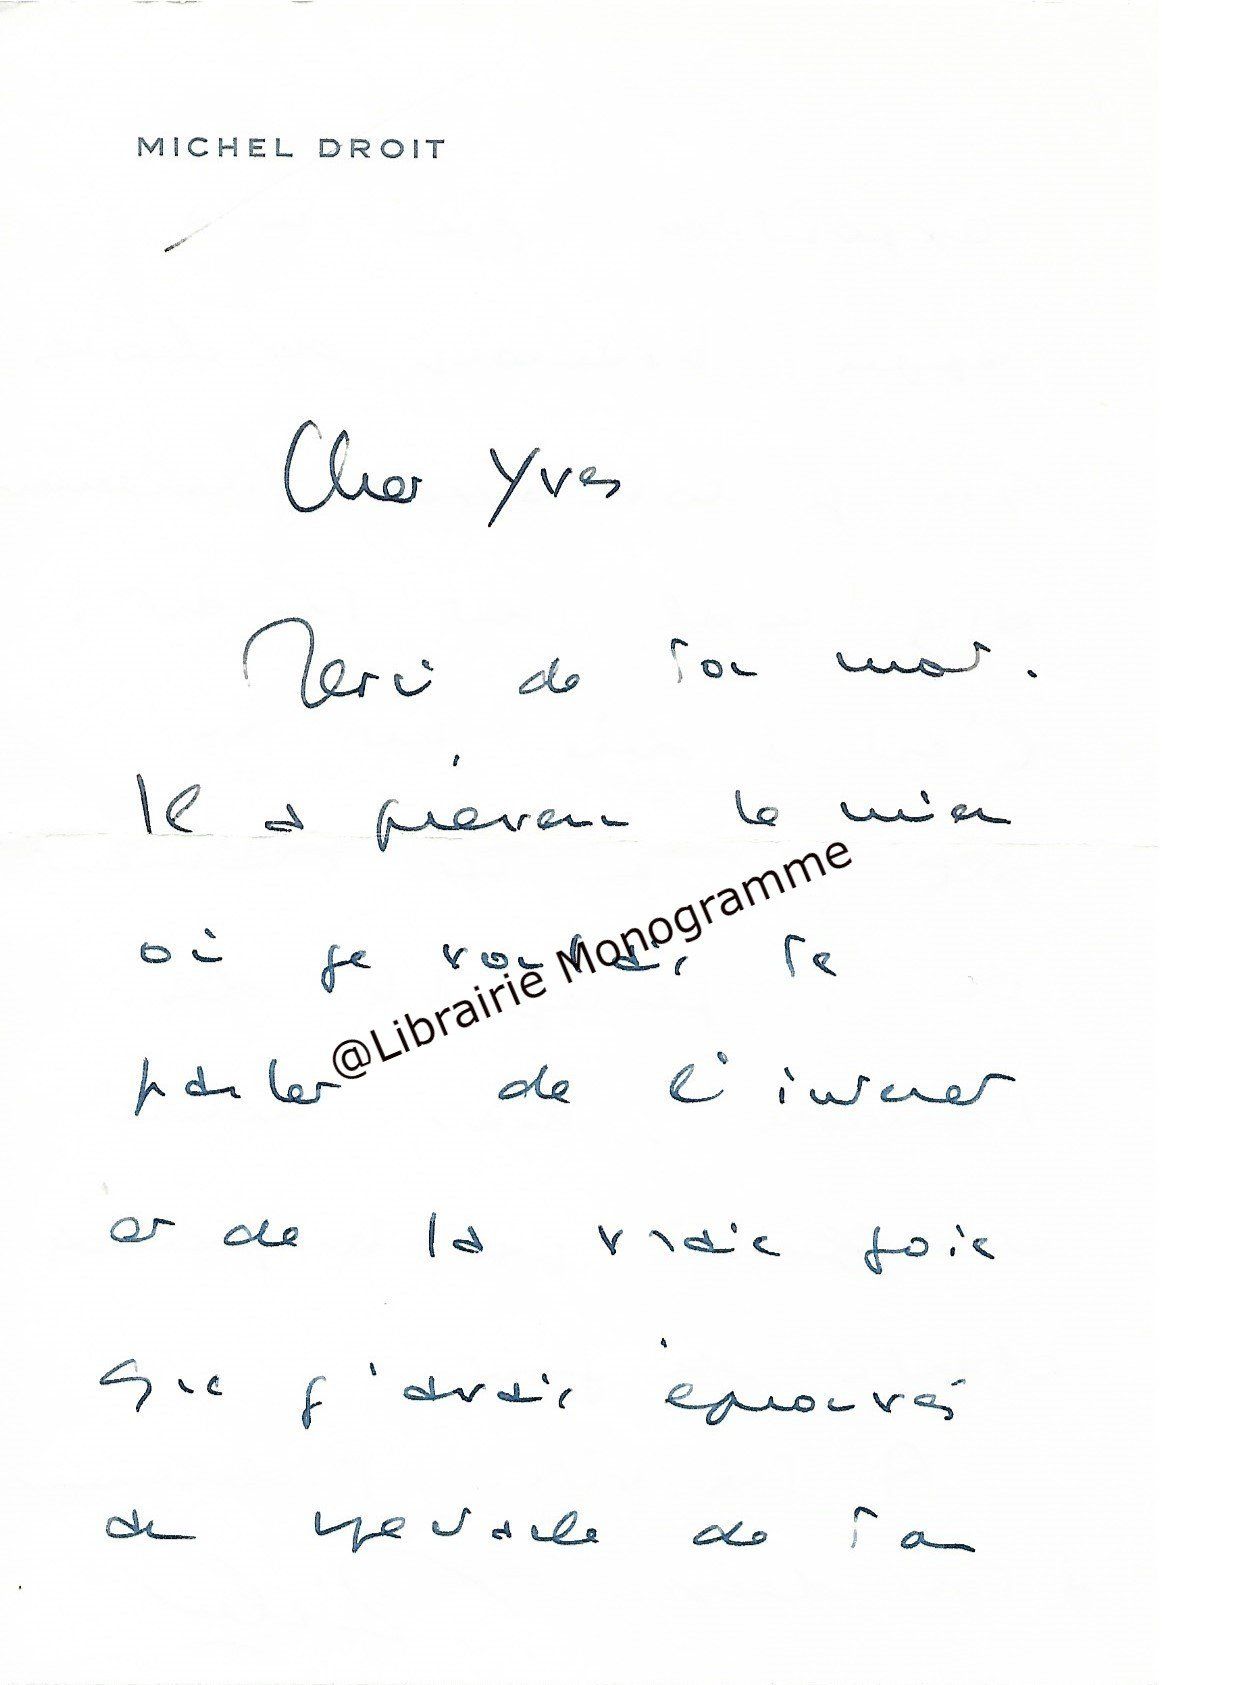 MICHEL DROIT
Cher Yves
Merci de ton mot.
Il a prévenu le mien
où je voulais te
@Librairie Monogramme
parler de l'intérêt
et de la vraie joie
que j'avais éprouvés
au spectacle de ton